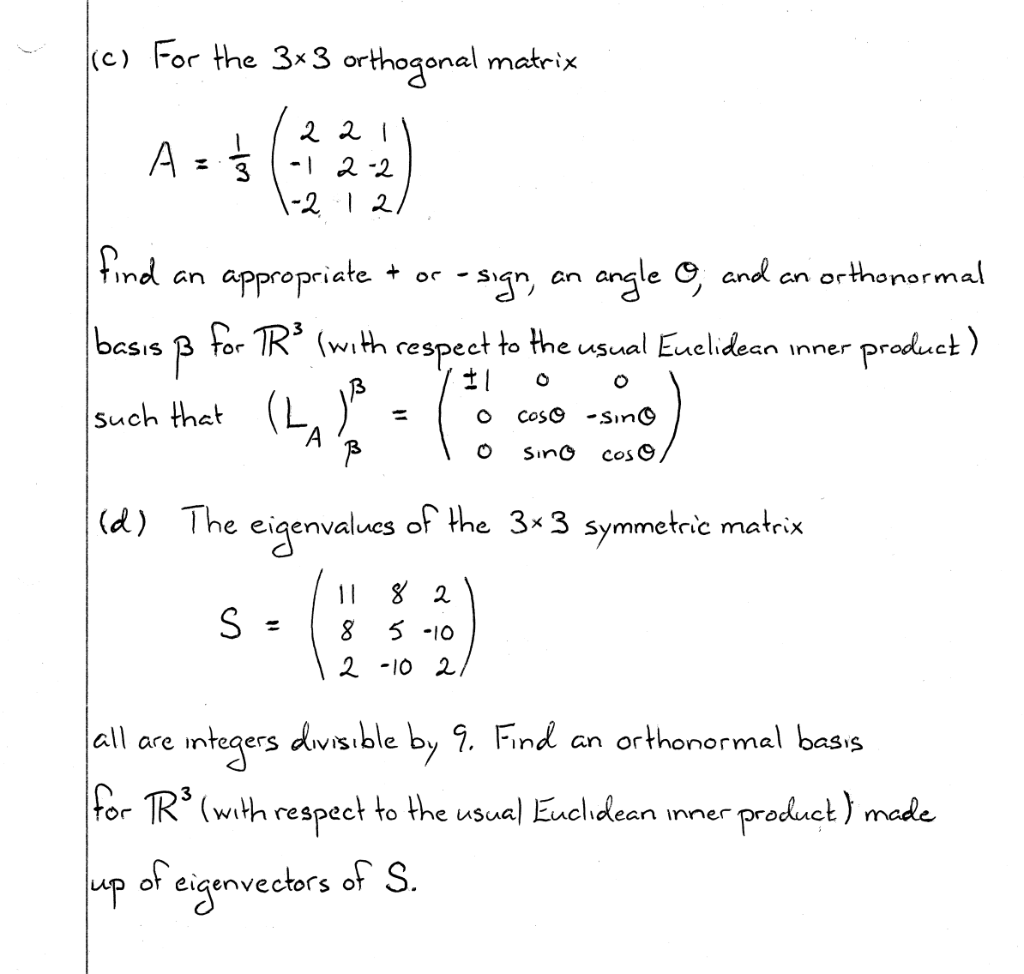 (c) For the 3×3 orthogonal matrix
A = 1/3 ( 2 2 1
-1 2 -2
-2 1 2 )
find an appropriate + or - sign, an angle θ, and an orthonormal
basis β for ℝ³ (with respect to the usual Euclidean inner product)
such that (L_A)^β_β = ( ±1 0 0
0 cosθ -sinθ
0 sinθ cosθ )
(d) The eigenvalues of the 3×3 symmetric matrix
S = ( 11 8 2
8 5 -10
2 -10 2 )
all are integers divisible by 9. Find an orthonormal basis
for ℝ³ (with respect to the usual Euclidean inner product) made
up of eigenvectors of S.